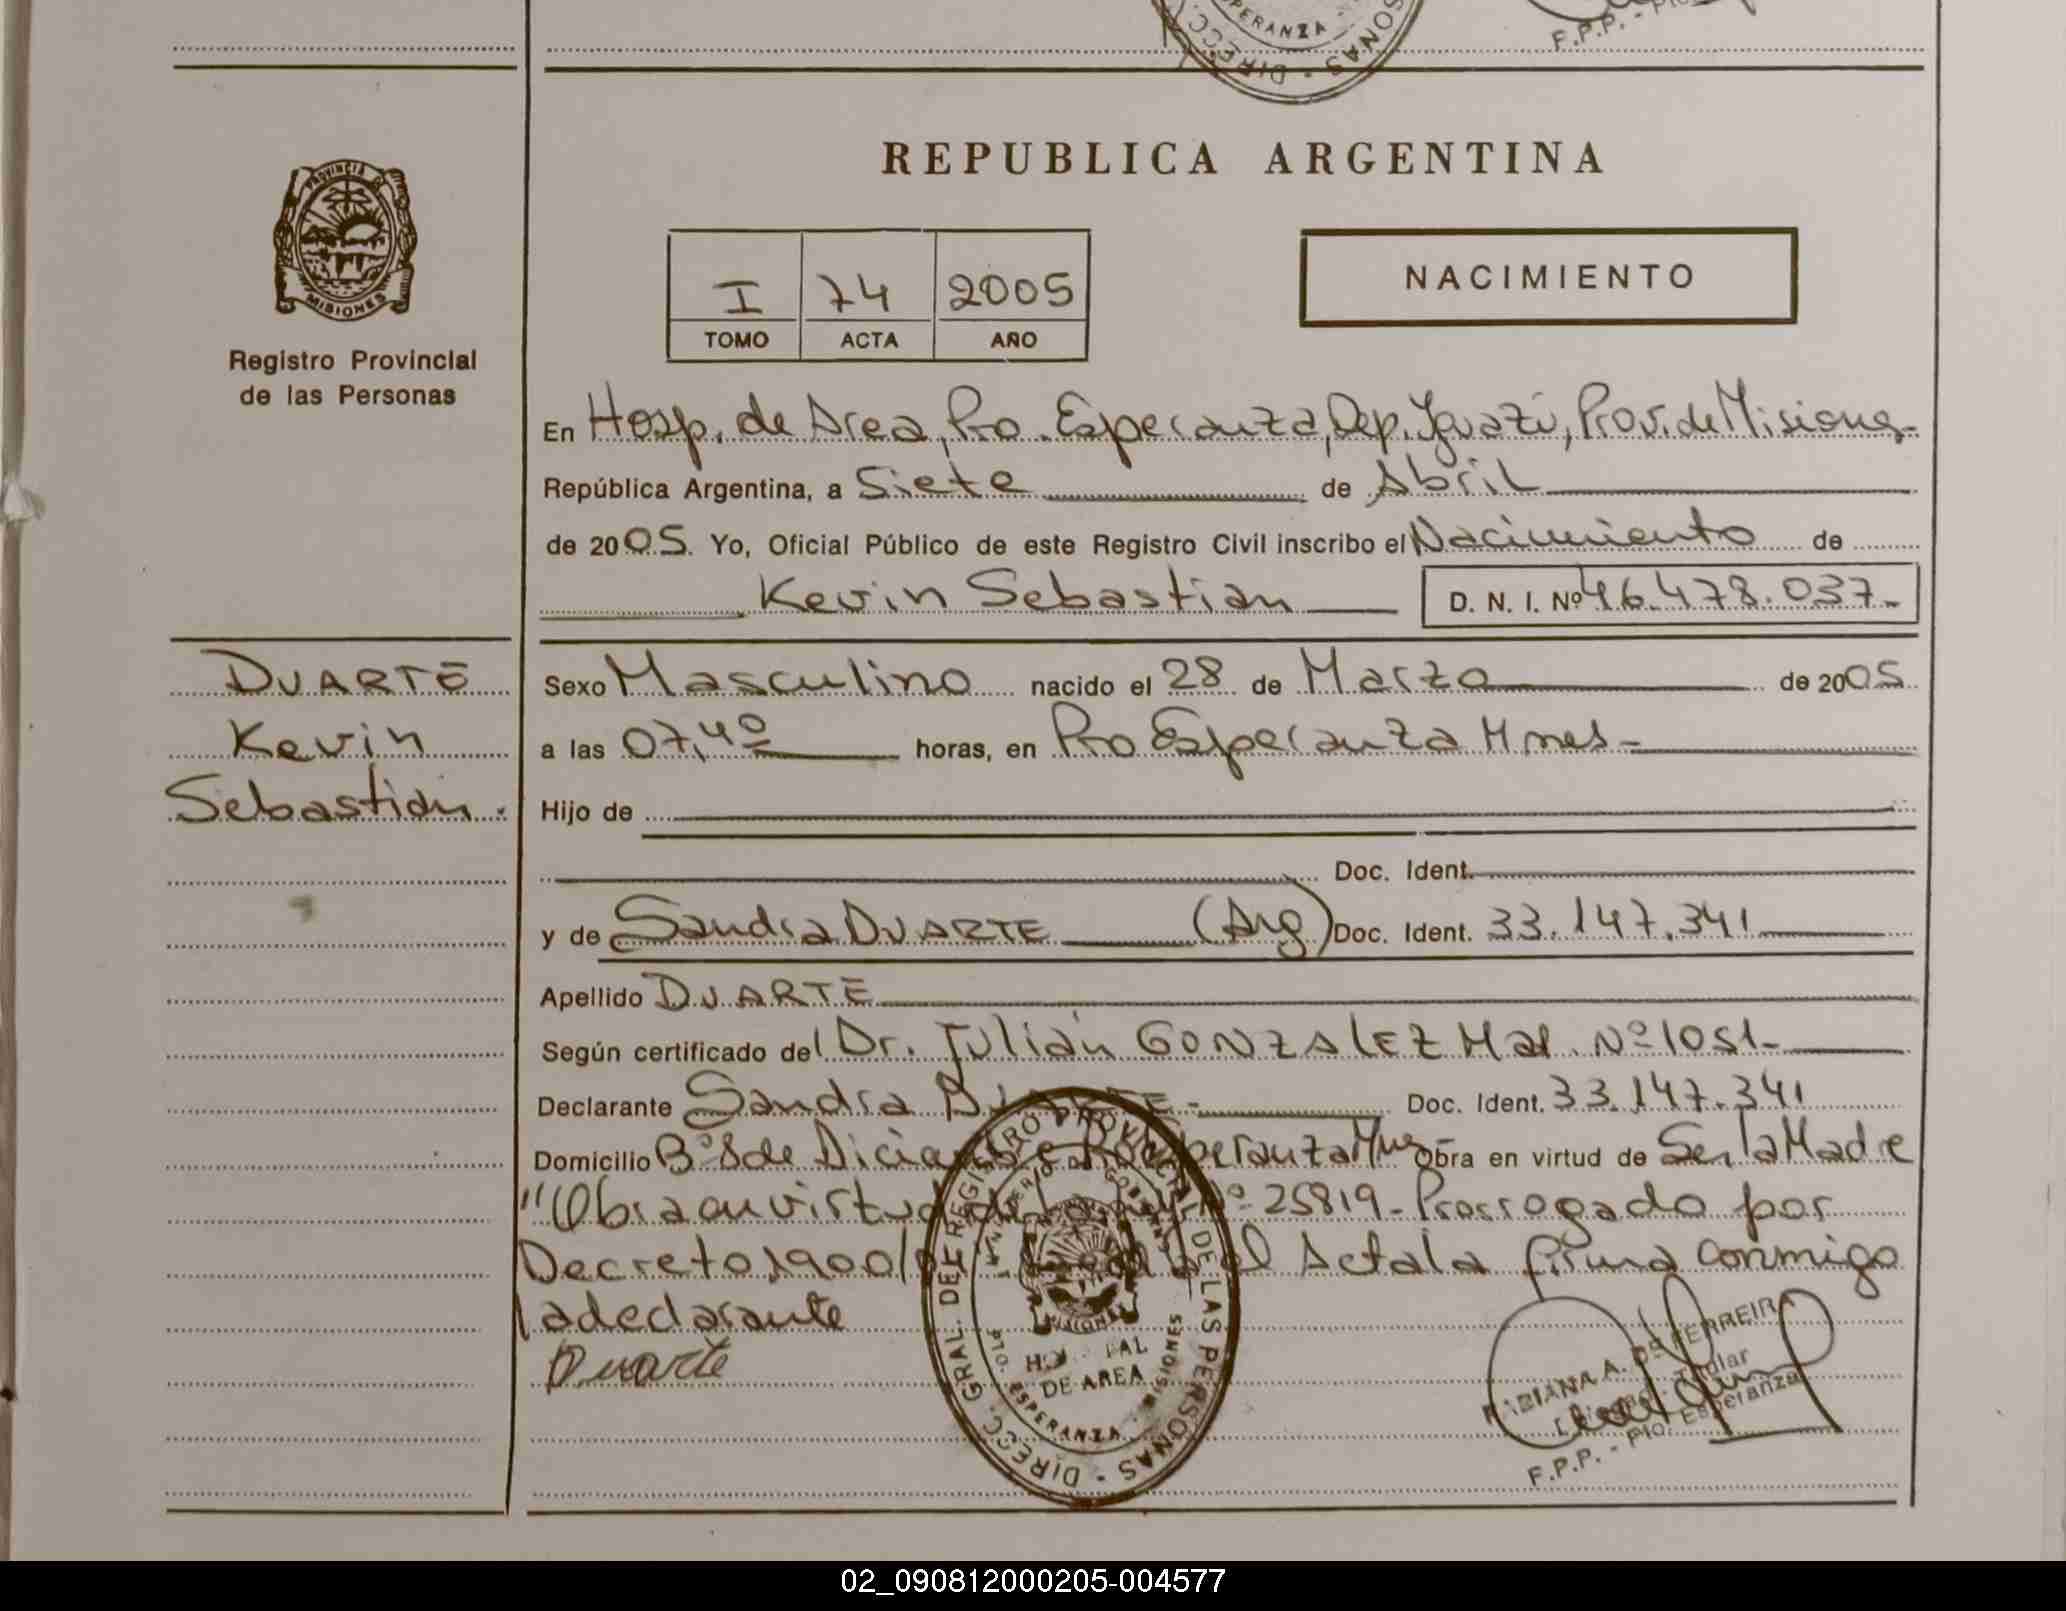 ESPERANZA
DIRECC.
SONAS
F.P.P. - Pto
REPUBLICA ARGENTINA
PROVINCIA DE
MISIONES
Registro Provincial
de las Personas
I 74 2005
TOMO ACTA AÑO
NACIMIENTO
En Hosp. de Area, Pto. Esperanza, Dep. Iguazú, Prov. de Misiones-
República Argentina, a Siete de Abril
de 2005. Yo, Oficial Público de este Registro Civil inscribo el Nacimiento de
Kevin Sebastian D. N. I. Nº 46.478.037.-
DUARTE
Kevin
Sebastian.
Sexo Masculino nacido el 28 de Marzo de 2005
a las 07,40 horas, en Pto Esperanza Mnes-
Hijo de
Doc. Ident.
y de Sandra DUARTE (Arg) Doc. Ident. 33.147.341
Apellido DUARTE
Según certificado del Dr. Julián GONZALEZ Mat. Nº 1051-
Declarante Sandra DUARTE- Doc. Ident. 33.147.341
Domicilio Bº 8 de Diciembre Pto Esperanza Mnes Obra en virtud de Ser la Madre
"Obra en virtud Nº 25819- Prorrogado por
Decreto 1900/ el Acta la firma conmigo
la declarante
Duarte
DIRECC. GRAL. DEL REGISTRO PROVINCIAL DE LAS PERSONAS
MINISTERIO DE GOBIERNO
MISIONES
HOSPITAL
DE AREA
PTO. ESPERANZA - MISIONES
FABIANA A. Dº FERREIRA
Titular
F.P.P. - Pto. Esperanza
02_090812000205-004577